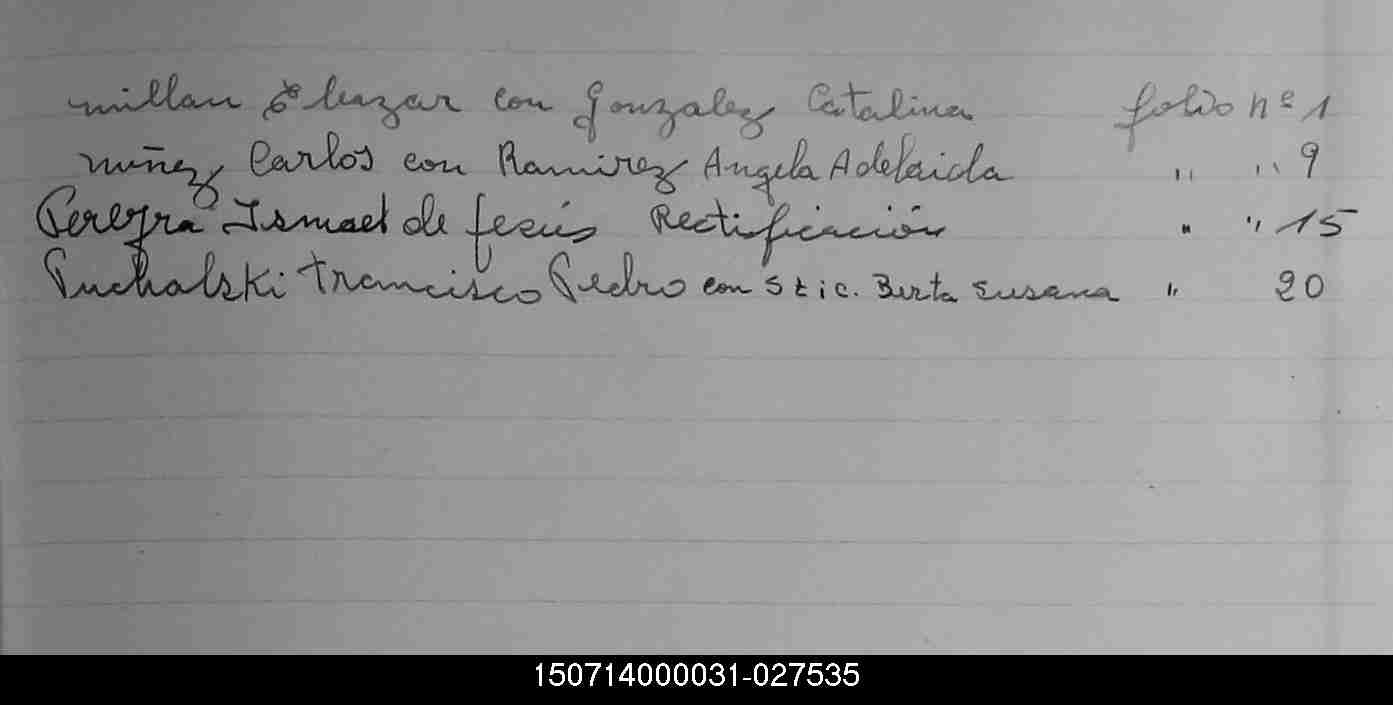 millan Eleazar con Gonzalez Catalina folio nº 1
nuñez Carlos con Ramirez Angela Adelaida " " 9
Pereyra Ismael de Jesús Rectificación " " 15
Puchalski Francisco Pedro con Stic. Berta Susana " 20
150714000031-027535